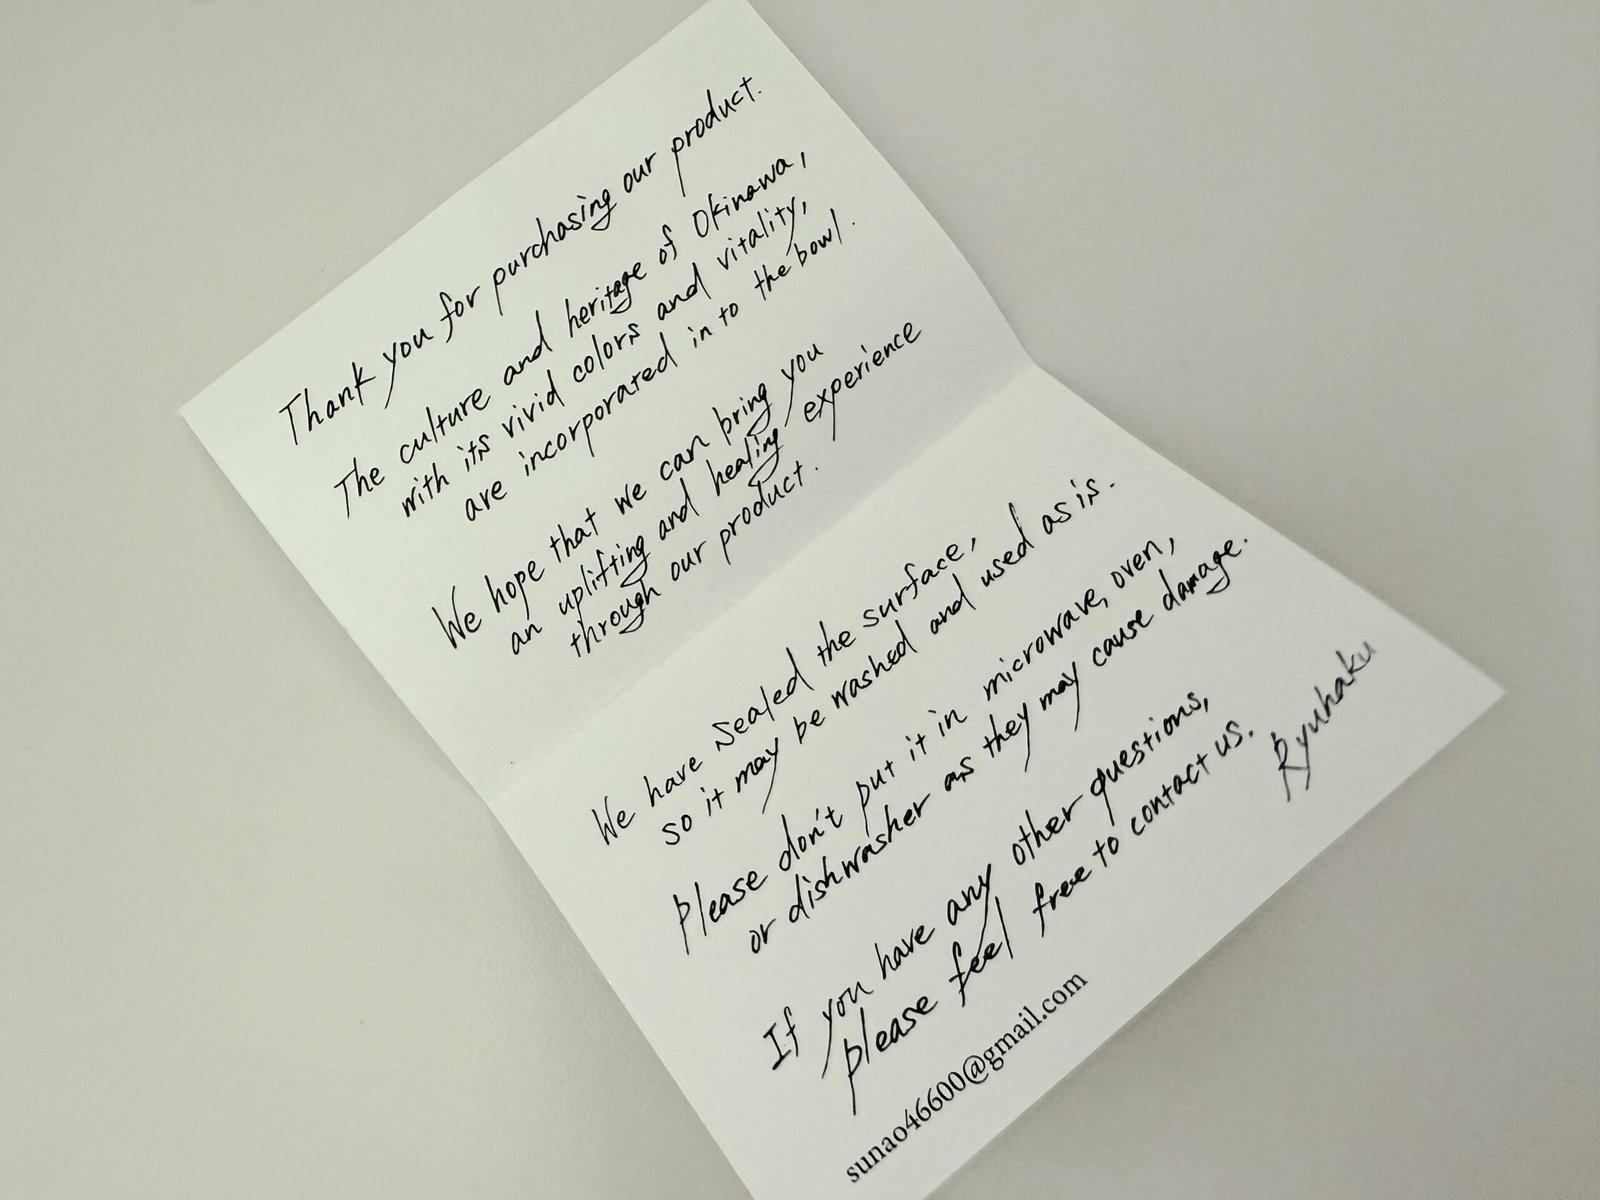 Thank you for purchasing our product.
The culture and heritage of Okinawa,
with its vivid colors and vitality,
are incorporated in to the bowl.
We hope that we can bring you
an uplifting and healing experience
through our product.
We have sealed the surface,
so it may be washed and used as is.
Please don't put it in microwave, oven,
or dishwasher as they may cause damage.
If you have any other questions,
please feel free to contact us.
Ryuhaku
sunao46600@gmail.com